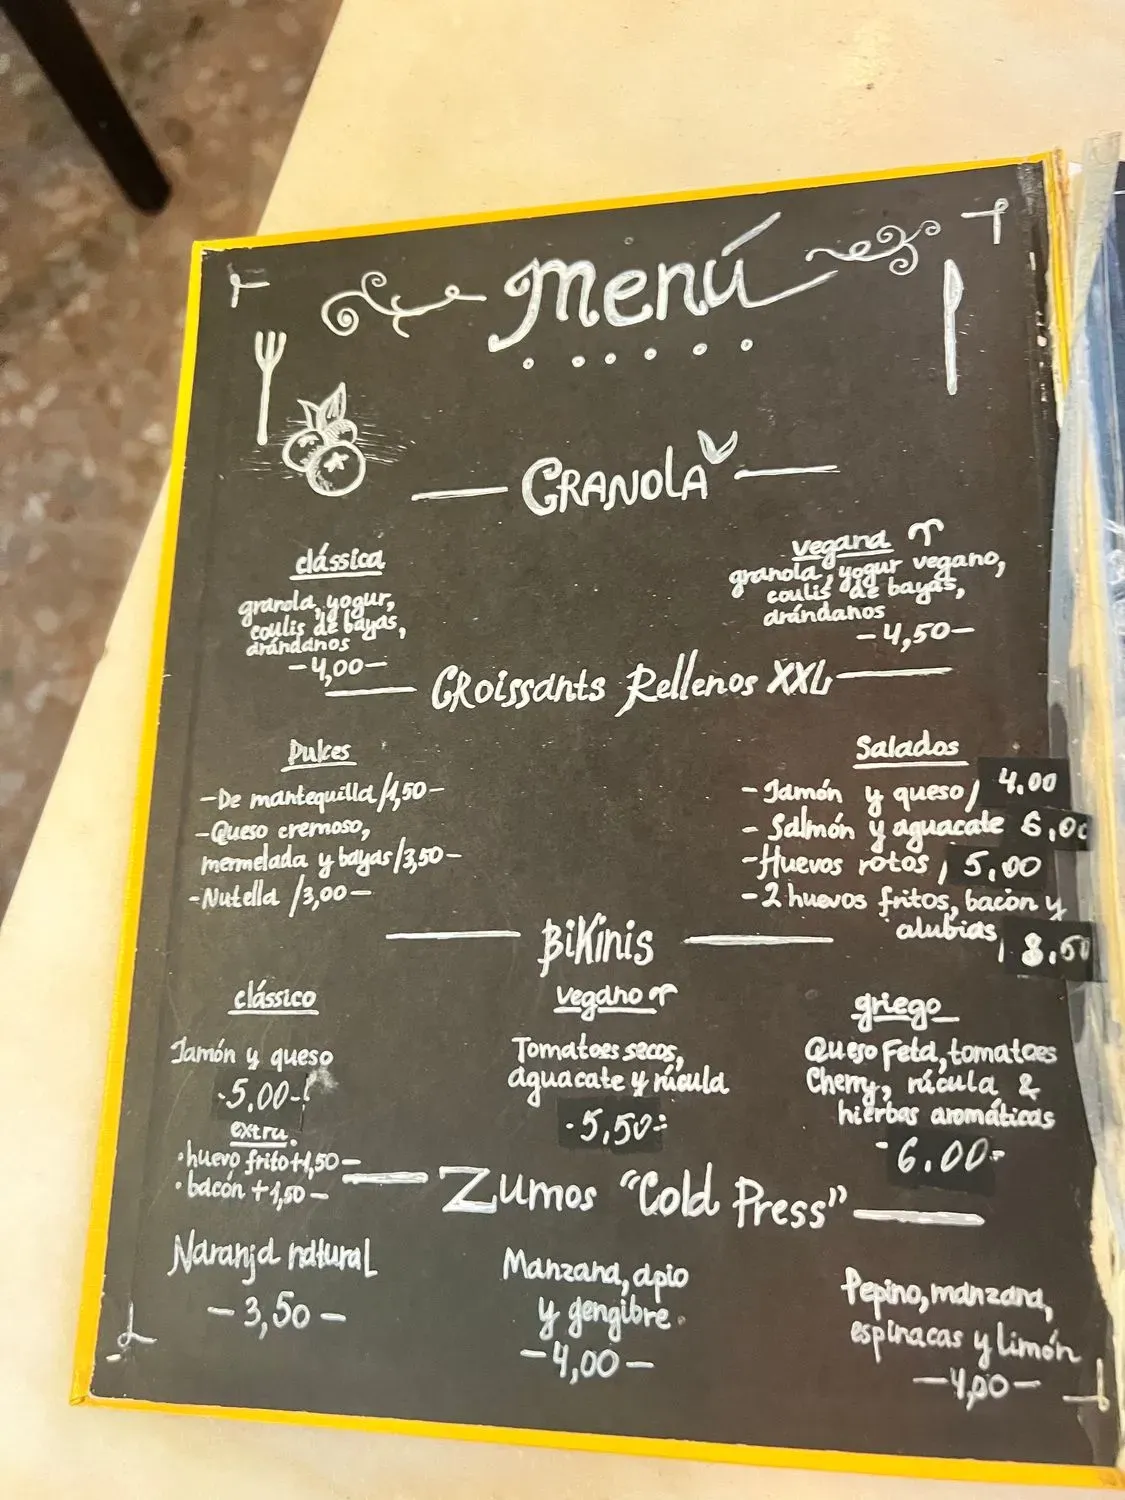 Menú
GRANOLA
clássica
granola, yogur,
coulis de bayas,
arándanos
-4,00-
vegana
granola, yogur vegano,
coulis de bayas,
arándanos
-4,50-
CRoissants Rellenos XXL
Dulces
-De mantequilla/1,50-
-Queso cremoso,
mermelada y bayas/3,50-
-Nutella /3,00-
Salados
-Jamón y queso/ 4.00
-Salmón y aguacate 6,00
-Huevos rotos / 5,00
-2 huevos fritos, bacon y
alubias / 8.50
BiKinis
clássico
Jamón y queso
-5,00-
extra
·huevo frito+1,50-
·bacón +1,50-
vegano
Tomatoes secos,
aguacate y rúcula
-5,50-
griego
Queso Feta, tomatoes
Cherry, rúcula &
hierbas aromáticas
-6.00-
Zumos "Cold Press"
Naranja natural
-3,50-
Manzana, apio
y gengibre.
-4,00-
Pepino, manzana,
espinacas y limón
-4,00-